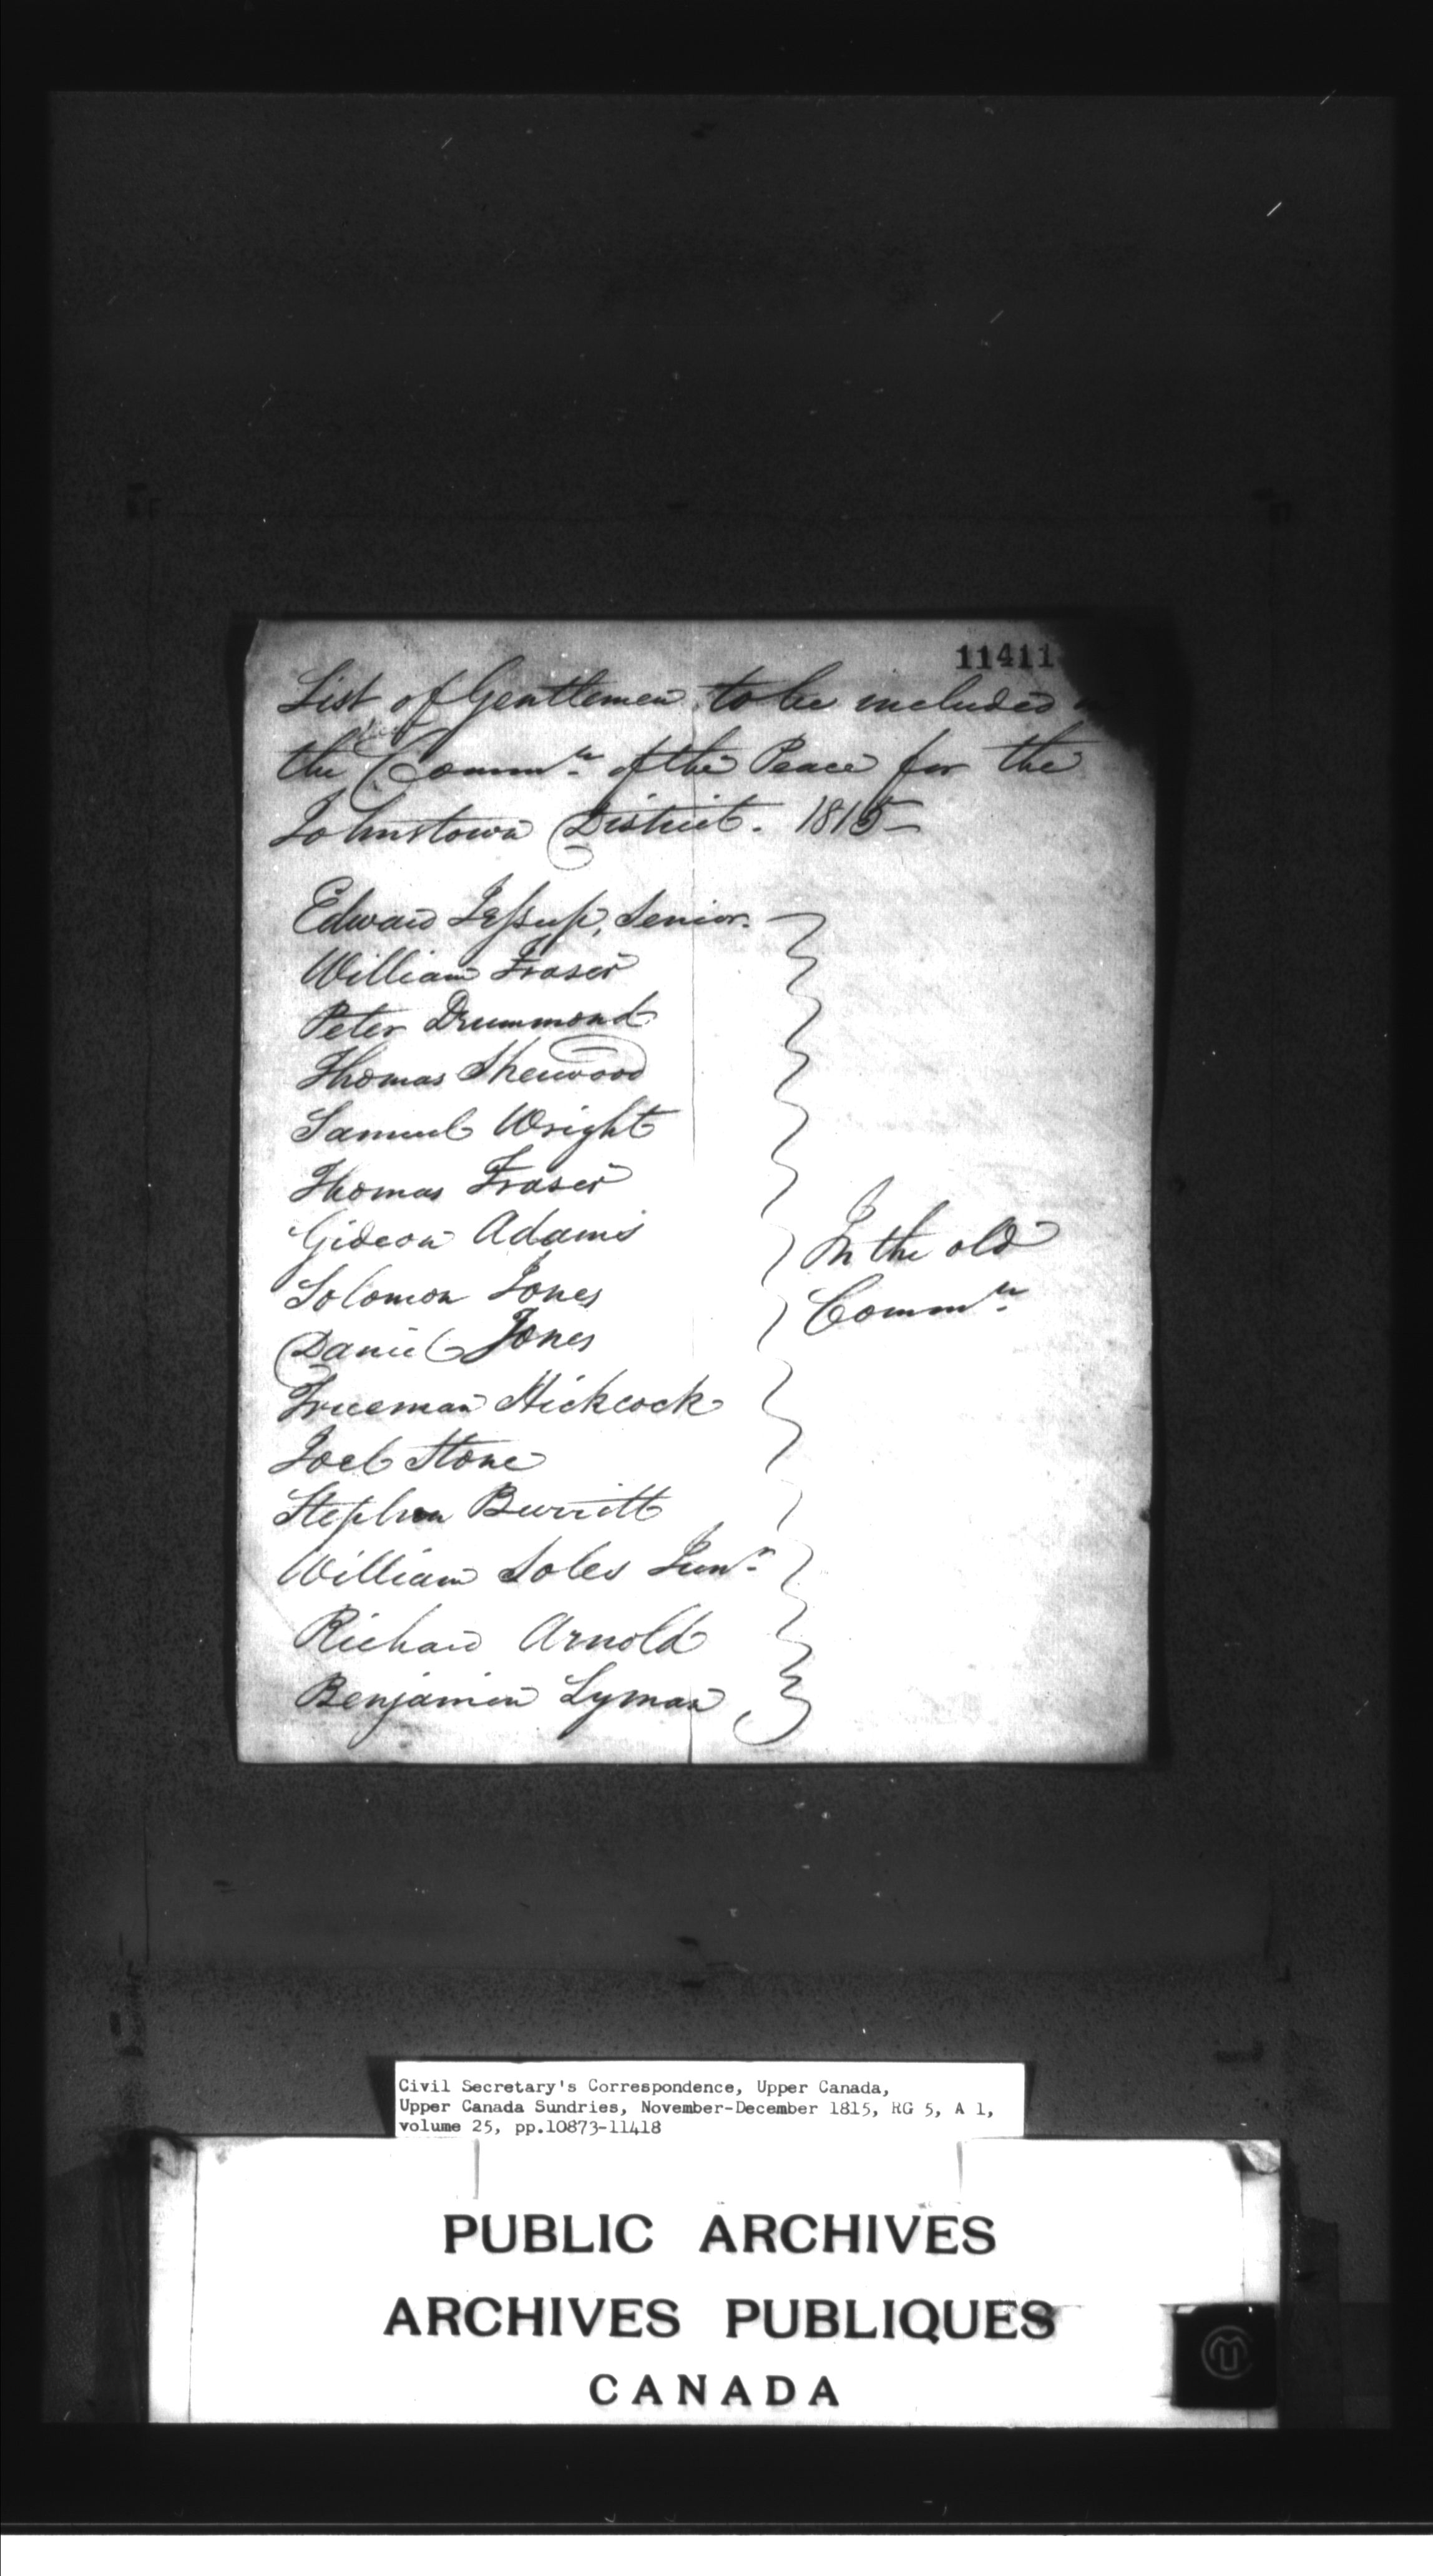 11411
List of Gentlemen to be included
the Comm.ⁿ of the Peace for the
Johnstown District. 1815–
Edward Jessup, Senior.
William Fraser
Peter Drummond
Thomas Sherwood
Samuel Wright
Thomas Fraser
Gideon Adams
Solomon Jones
Daniel Jones
Trueman Hickcock
Joel Stone
Stephen Burritt
William Soles Jun.ʳ
Richard Arnold
Benjamin Lyman
In the old
Comm.ⁿ
Civil Secretary's Correspondence, Upper Canada,
Upper Canada Sundries, November-December 1815, RG 5, A 1,
volume 25, pp.10873-11418
PUBLIC ARCHIVES
ARCHIVES PUBLIQUES
CANADA